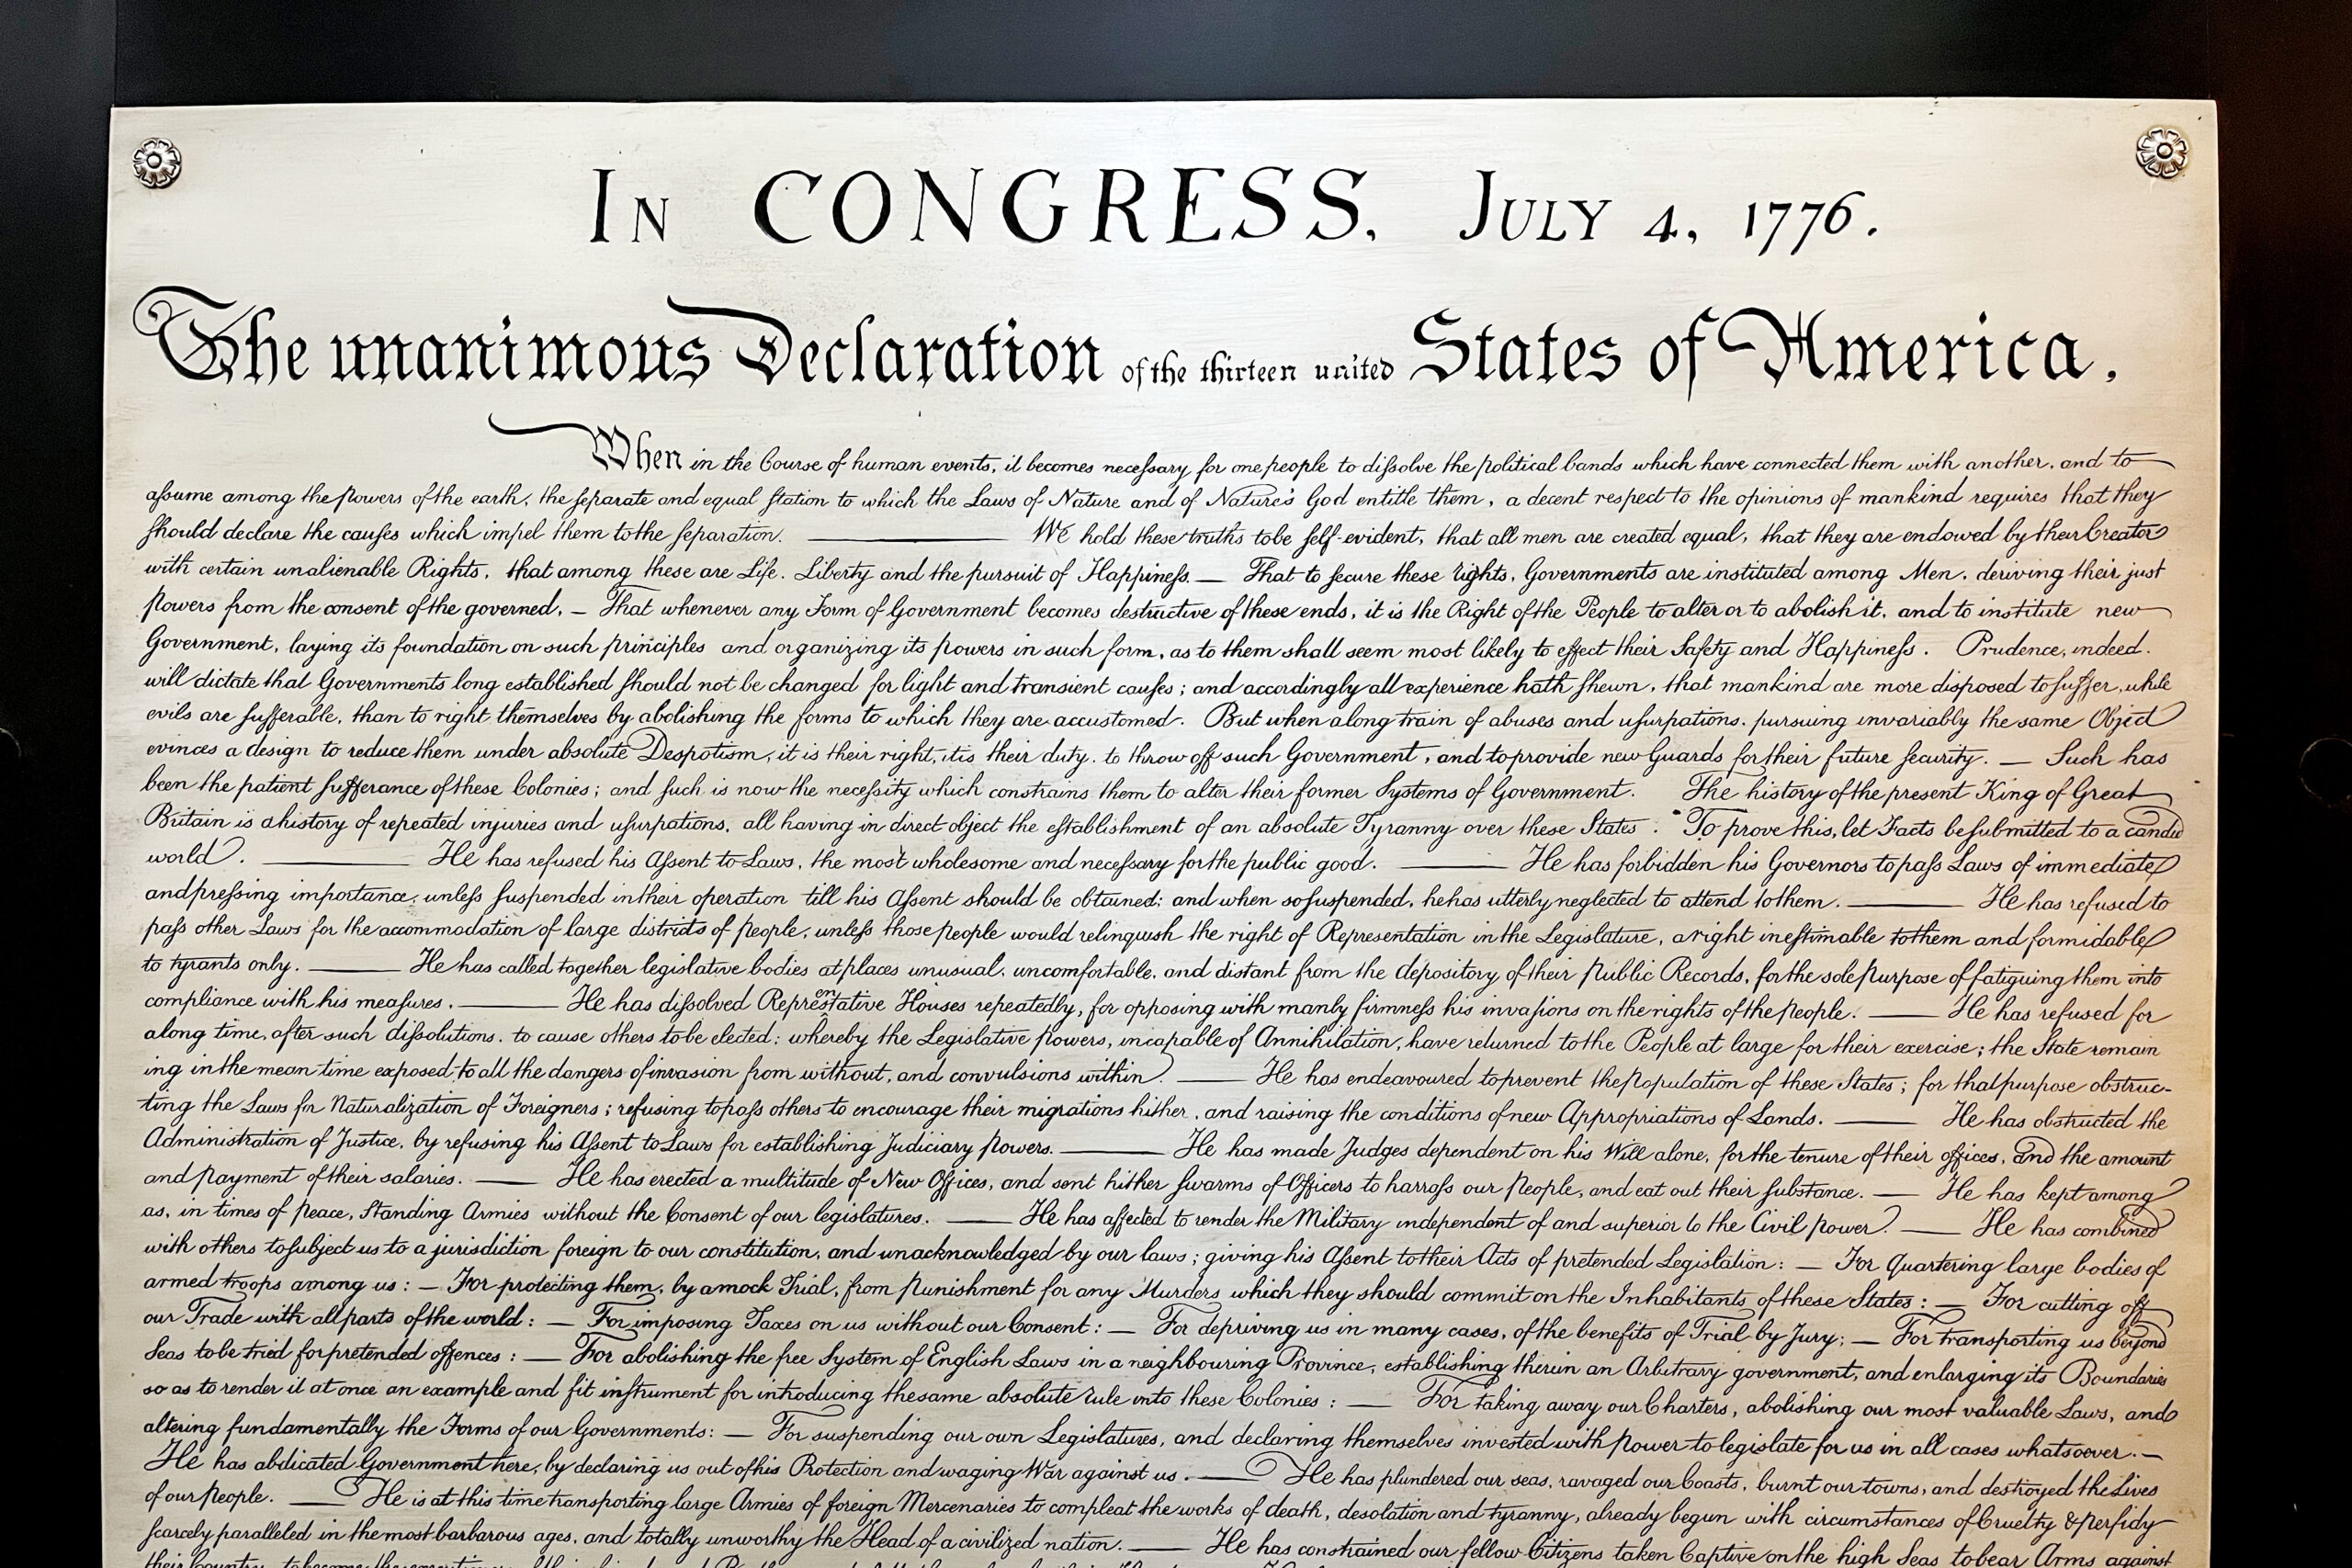 IN CONGRESS, JULY 4, 1776.
The unanimous Declaration of the thirteen united States of America,
When in the Course of human events, it becomes necessary for one people to dissolve the political bands which have connected them with another, and to
assume among the powers of the earth, the separate and equal station to which the Laws of Nature and of Nature's God entitle them, a decent respect to the opinions of mankind requires that they
should declare the causes which impel them to the separation. ——— We hold these truths to be self-evident, that all men are created equal, that they are endowed by their Creator
with certain unalienable Rights, that among these are Life, Liberty and the pursuit of Happiness. — That to secure these rights, Governments are instituted among Men, deriving their just
powers from the consent of the governed, — That whenever any Form of Government becomes destructive of these ends, it is the Right of the People to alter or to abolish it, and to institute new
Government, laying its foundation on such principles and organizing its powers in such form, as to them shall seem most likely to effect their Safety and Happiness. Prudence, indeed,
will dictate that Governments long established should not be changed for light and transient causes; and accordingly all experience hath shewn, that mankind are more disposed to suffer, while
evils are sufferable, than to right themselves by abolishing the forms to which they are accustomed. But when a long train of abuses and usurpations, pursuing invariably the same Object
evinces a design to reduce them under absolute Despotism, it is their right, it is their duty, to throw off such Government, and to provide new Guards for their future security. — Such has
been the patient sufferance of these Colonies; and such is now the necessity which constrains them to alter their former Systems of Government. The history of the present King of Great
Britain is a history of repeated injuries and usurpations, all having in direct object the establishment of an absolute Tyranny over these States. To prove this, let Facts be submitted to a candid
world. ——— He has refused his Assent to Laws, the most wholesome and necessary for the public good. ——— He has forbidden his Governors to pass Laws of immediate
and pressing importance, unless suspended in their operation till his Assent should be obtained; and when so suspended, he has utterly neglected to attend to them. ——— He has refused to
pass other Laws for the accommodation of large districts of people, unless those people would relinquish the right of Representation in the Legislature, a right inestimable to them and formidable
to tyrants only. ——— He has called together legislative bodies at places unusual, uncomfortable, and distant from the depository of their Public Records, for the sole purpose of fatiguing them into
compliance with his measures. ——— He has dissolved Representative Houses repeatedly, for opposing with manly firmness his invasions on the rights of the people. ——— He has refused for
a long time, after such dissolutions, to cause others to be elected; whereby the Legislative powers, incapable of Annihilation, have returned to the People at large for their exercise; the State remain
ing in the mean time exposed to all the dangers of invasion from without, and convulsions within. ——— He has endeavoured to prevent the population of these States; for that purpose obstruc-
ting the Laws for Naturalization of Foreigners; refusing to pass others to encourage their migrations hither, and raising the conditions of new Appropriations of Lands. ——— He has obstructed the
Administration of Justice, by refusing his Assent to Laws for establishing Judiciary powers. ——— He has made Judges dependent on his Will alone, for the tenure of their offices, and the amount
and payment of their salaries. ——— He has erected a multitude of New Offices, and sent hither swarms of Officers to harrass our people, and eat out their substance. — He has kept among
as, in times of peace, Standing Armies without the Consent of our legislatures. ——— He has affected to render the Military independent of and superior to the Civil power. — He has combined
with others to subject us to a jurisdiction foreign to our constitution, and unacknowledged by our laws; giving his Assent to their Acts of pretended Legislation: — For Quartering large bodies of
armed troops among us: — For protecting them, by a mock Trial, from punishment for any Murders which they should commit on the Inhabitants of these States: — For cutting off
our Trade with all parts of the world: — For imposing Taxes on us without our Consent: — For depriving us in many cases, of the benefits of Trial by Jury; — For transporting us beyond
Seas to be tried for pretended offences: — For abolishing the free System of English Laws in a neighbouring Province, establishing therein an Arbitrary government, and enlarging its Boundaries
so as to render it at once an example and fit instrument for introducing the same absolute rule into these Colonies: — For taking away our Charters, abolishing our most valuable Laws, and
altering fundamentally the Forms of our Governments: — For suspending our own Legislatures, and declaring themselves invested with power to legislate for us in all cases whatsoever. —
He has abdicated Government here, by declaring us out of his Protection and waging War against us. ——— He has plundered our seas, ravaged our Coasts, burnt our towns, and destroyed the Lives
of our people. ——— He is at this time transporting large Armies of foreign Mercenaries to compleat the works of death, desolation and tyranny, already begun with circumstances of Cruelty & perfidy
scarcely paralleled in the most barbarous ages, and totally unworthy the Head of a civilized nation. ——— He has constrained our fellow Citizens taken Captive on the high Seas to bear Arms against
their Country, to become the